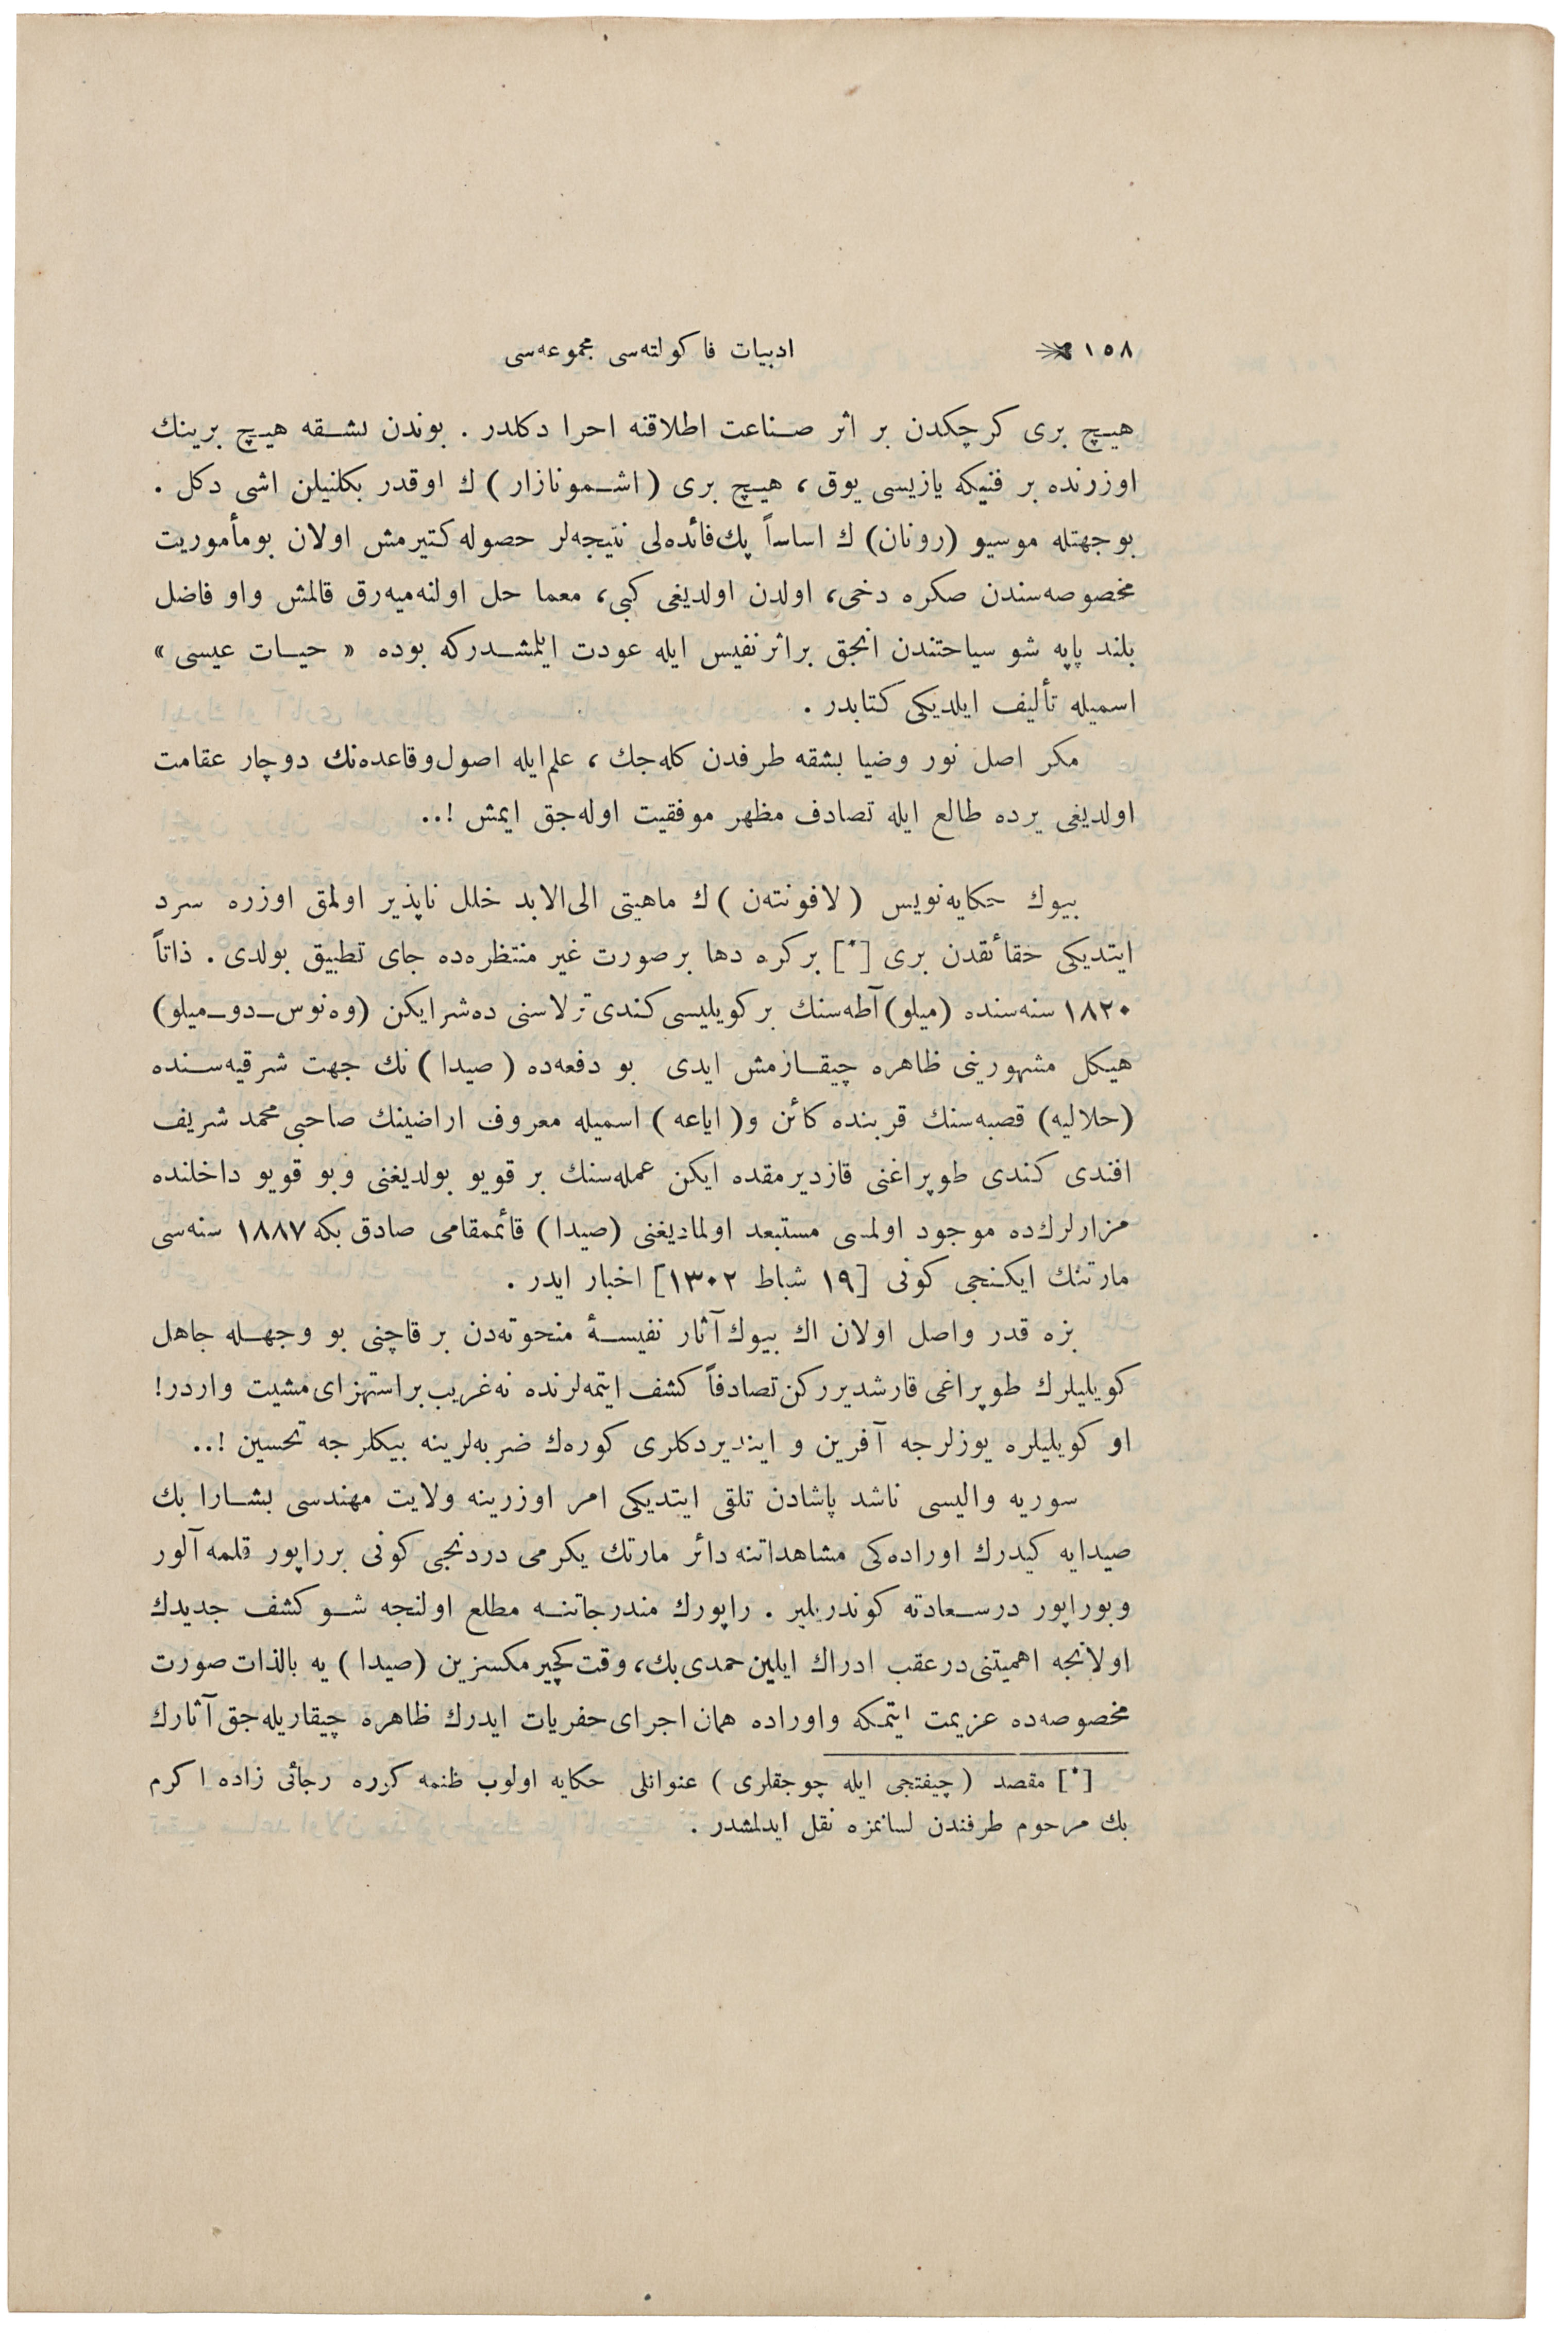 ١٥٨ ادبیات فاكولته‌سی مجموعه‌سی
هیچ بری كرچكدن بر اثر صناعت اطلاقنه احرا دكلدر . بوندن بشقه هیچ برینك
اوزرنده بر فنیكه یازیسی یوق ، هیچ بری (اشمونازار) ك اوقدر بكلنیلن اشی دكل .
بوجهتله موسیو (رونان) ك اساساً پك فائده‌لی نتیجه‌لر حصوله كتیرمش اولان بومأموریت
مخصوصه‌سندن صكره دخی، اولدن اولدیغی كبی، معما حل اولنه‌میه‌رق قالمش واو فاضل
بلند پایه شو سیاحتندن انجق براثر نفیس ایله عودت ایلمشدركه بوده « حیات عیسی »
اسمیله تألیف ایلدیكی كتابدر .
مكر اصل نور وضیا بشقه طرفدن كله‌جك ، علم ایله اصول وقاعده‌نك دوچار عقامت
اولدیغی یرده طالع ایله تصادف مظهر موفقیت اوله‌جق ایمش !..
بیوك حكایه‌نویس (لافونته‌ن) ك ماهیتی الی‌الابد خلل ناپذیر اولمق اوزره سرد
ایتدیكی حقائقدن بری [*] بركره دها برصورت غیر منتظره‌ده جای تطبیق بولدی . ذاتاً
١٨٢٠ سنه‌سنده (میلو) آطه‌سنك بر كویلیسی كندی ترلاسنی ده‌شر ایكن (وه‌نوس-دو-میلو)
هیكل مشهورینی ظاهره چیقازمش ایدی بو دفعه‌ده (صیدا) نك جهت شرقیه‌سنده
(حلالیه) قصبه‌سنك قربنده كائن و (ایاعه) اسمیله معروف اراضینك صاحبی محمد شریف
افندی كندی طوپراغنی قازدیرمقده ایكن عمله‌سنك بر قویو بولدیغنی وبو قویو داخلنده
مزارلرك‌ده موجود اولمسی مستبعد اولمادیغنی (صیدا) قائممقامی صادق بكه ١٨٨٧ سنه‌سی
مارتنك ایكنجی كونی [١٩ شباط ١٣٠٢] اخبار ایدر .
بزه قدر واصل اولان اك بیوك آثار نفیسهٔ منحوته‌دن بر قاچنی بو وجهله جاهل
كویلیلرك طوپراغی قارشدیرركن تصادفاً كشف ایتمه‌لرنده نه غریب براستهزای مشیت واردر!
او كویلیلره یوزلرجه آفرین و ایندیردكلری كوره‌ك ضربه‌لرینه بیكلرجه تحسین !..
سوریه والیسی ناشد پاشادن تلقی ایتدیكی امر اوزرینه ولایت مهندسی بشارا بك
صیدایه كیدرك اوراده‌كی مشاهداتنه دائر مارتك یكرمی دردنجی كونی برراپور قلمه آلور
وبوراپور درسعادته كوندریلیر . راپورك مندرجاتنه مطلع اولنجه شو كشف جدیدك
اولانجه اهمیتنی درعقب ادراك ایلین حمدی بك، وقت كچیرمكسزین (صیدا) یه بالذات صورت
مخصوصه‌ده عزیمت ایتمكه واوراده همان اجرای حفریات ایدرك ظاهره چیقاریله‌جق آثارك
[*] مقصد (چیفتجی ایله چوجقلری) عنوانلی حكایه اولوب ظنمه كوره رجائی زاده اكرم
بك مرحوم طرفندن لسانمزه نقل ایدلمشدر .